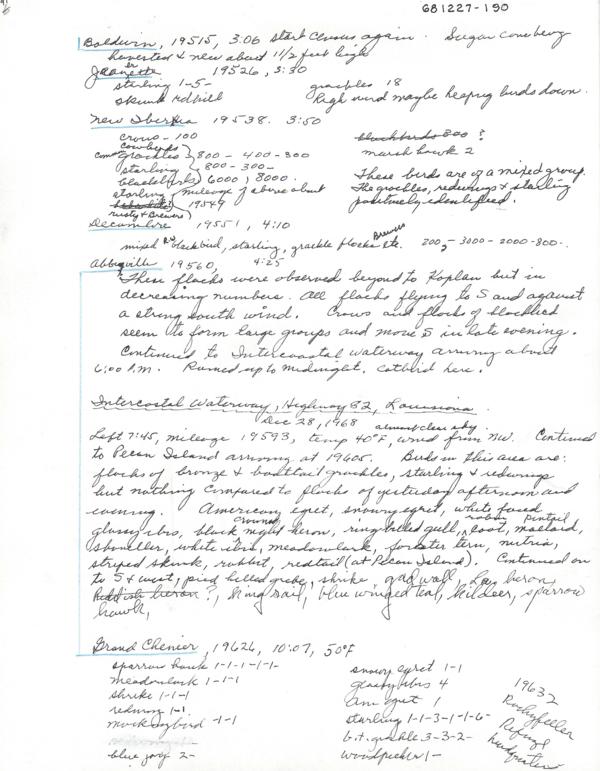 681227-190
Baldwin, 19515, 3:06 start census again. Sugar cane being
harvested & new about 1 1/2 feet high
Jeanerette 19526, 3:30
starling 1-5- grackles 18
skunk rdkill High wind maybe keeping birds down.
New Iberia 19538. 3:50
crows - 100 blackbirds 800 ?
cowbirds marsh hawk 2
common grackles } 800 - 400-300
starling } 800-300- These birds are of a mixed group.
blackbirds 6000, 8000. The grackles, redwings & starling
starling mileage of above about positively identified.
19549
rusty & Brewers
Decembre 19551, 4:10
mixed RW blackbird, starling, grackle flocks Brewers etc. 200,-3000-2000-800-.
Abbeville 19560, 4:25
These flocks were observed beyond to Kaplan but in
decreasing numbers. All flocks flying to S and against
a strong south wind. Crows and flocks of blackbird
seem to form large groups and move S in late evening.
Continued to Intercoastal Waterway arriving about
6:00 P.M. Rained up to midnight. Catbird here.
Intercostal Waterway, Highway 82, Louisiana
Dec 28, 1968 almost clear sky.
Left 7:45, mileage 19593, temp 40°F, wind from NW. Continued
to Pecan Island arriving at 19605. Birds in this area are:
flocks of bronze & boattail grackles, starling & redwings
but nothing compared to flocks of yesterday afternoon and
evening. American egret, snowy egret, white faced
glossy ibis, black crowned night heron, ring billed gull, robin, coot, pintail, mallard,
shoveller, white ibis, meadowlark, forester tern, nutria,
striped skunk, rabbit, redtail (at Pecan Island). Continued on
to S & west, pied billed grebe, shrike, gadwall, heron,
Reddish heron ?, king rail, blue winged teal, kildeer, sparrow
hawk,
Grand Chenier, 19626, 10:07, 50°F
sparrow hawk 1-1-1-1-1- snowy egret 1-1
meadowlark 1-1-1 glossy ibis 4
shrike 1-1-1 am egret 1
redwing 1-1 starling 1-1-3-1-1-6-
mockingbird -1-1 b.t. grackle 3-3-2-
blue jay 2- woodpecker 1-
19632
Rockyfeller
Refuge
headquarters